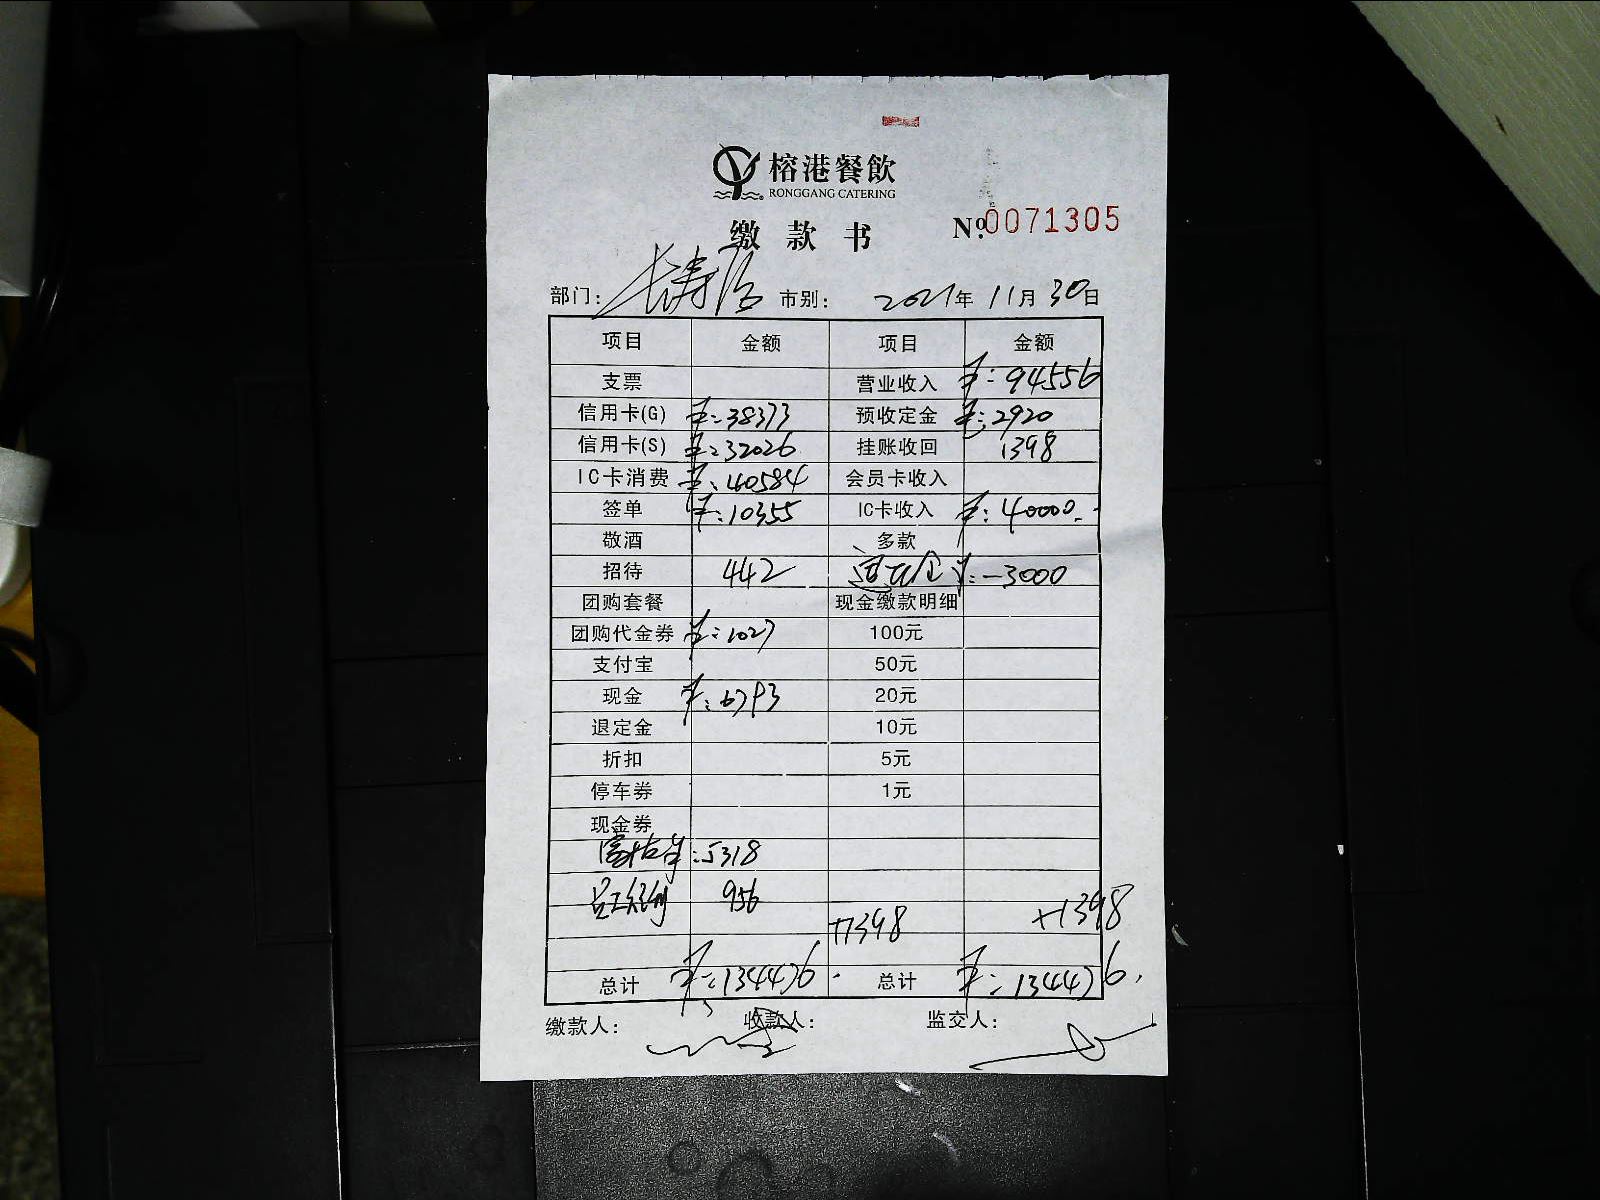 榕港餐飲
RONGGANG CATERING
缴款书 №0071305
部门: 长寿 市别: 2021年 11月 30日
项目 金额 项目 金额
支票 营业收入 ¥:94556
信用卡(G) ¥:38373 预收定金 ¥:2920
信用卡(S) ¥:32026 挂账收回 1398
IC卡消费 ¥:40584 会员卡收入
签单 ¥:10355 IC卡收入 ¥:40000.-
敬酒 多款
招待 442 ¥:-3000
团购套餐 现金缴款明细
团购代金券 ¥:1027 100元
支付宝 50元
现金 ¥:6793 20元
退定金 10元
折扣 5元
停车券 1元
现金券
¥:5318
956
+1398 +1398
总计 ¥:134476. 总计 ¥:134476.
缴款人: 收款人: 监交人: